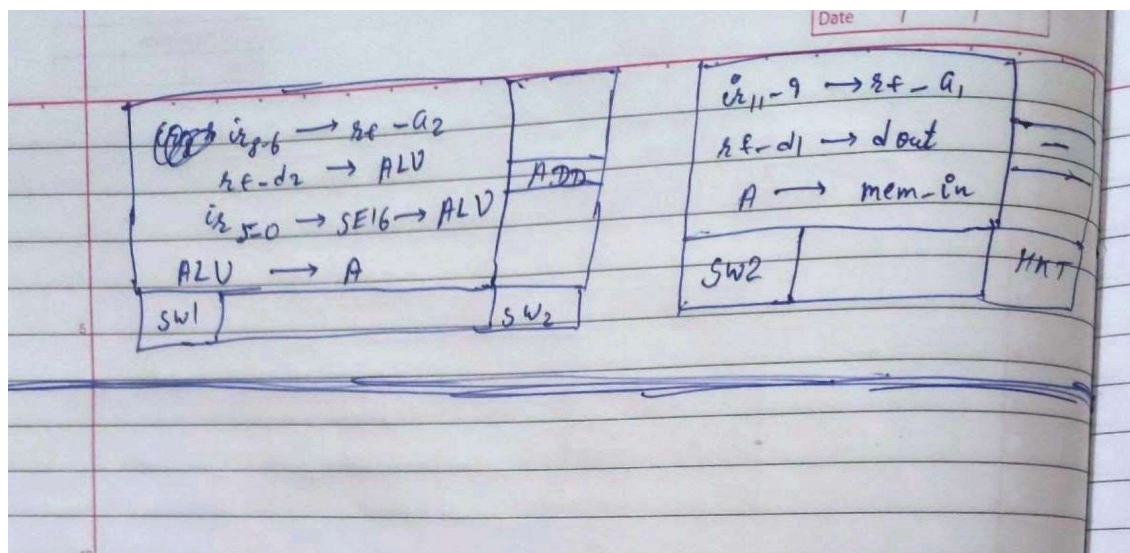 Date
ir8-6 → rf-a2
rf-d2 → ALU
ADD
ir5-0 → SE16 → ALU
ALU → A
SW1
SW2
ir11-9 → rf-a1
rf-d1 → dout
—
A → mem-in
SW2
HKT